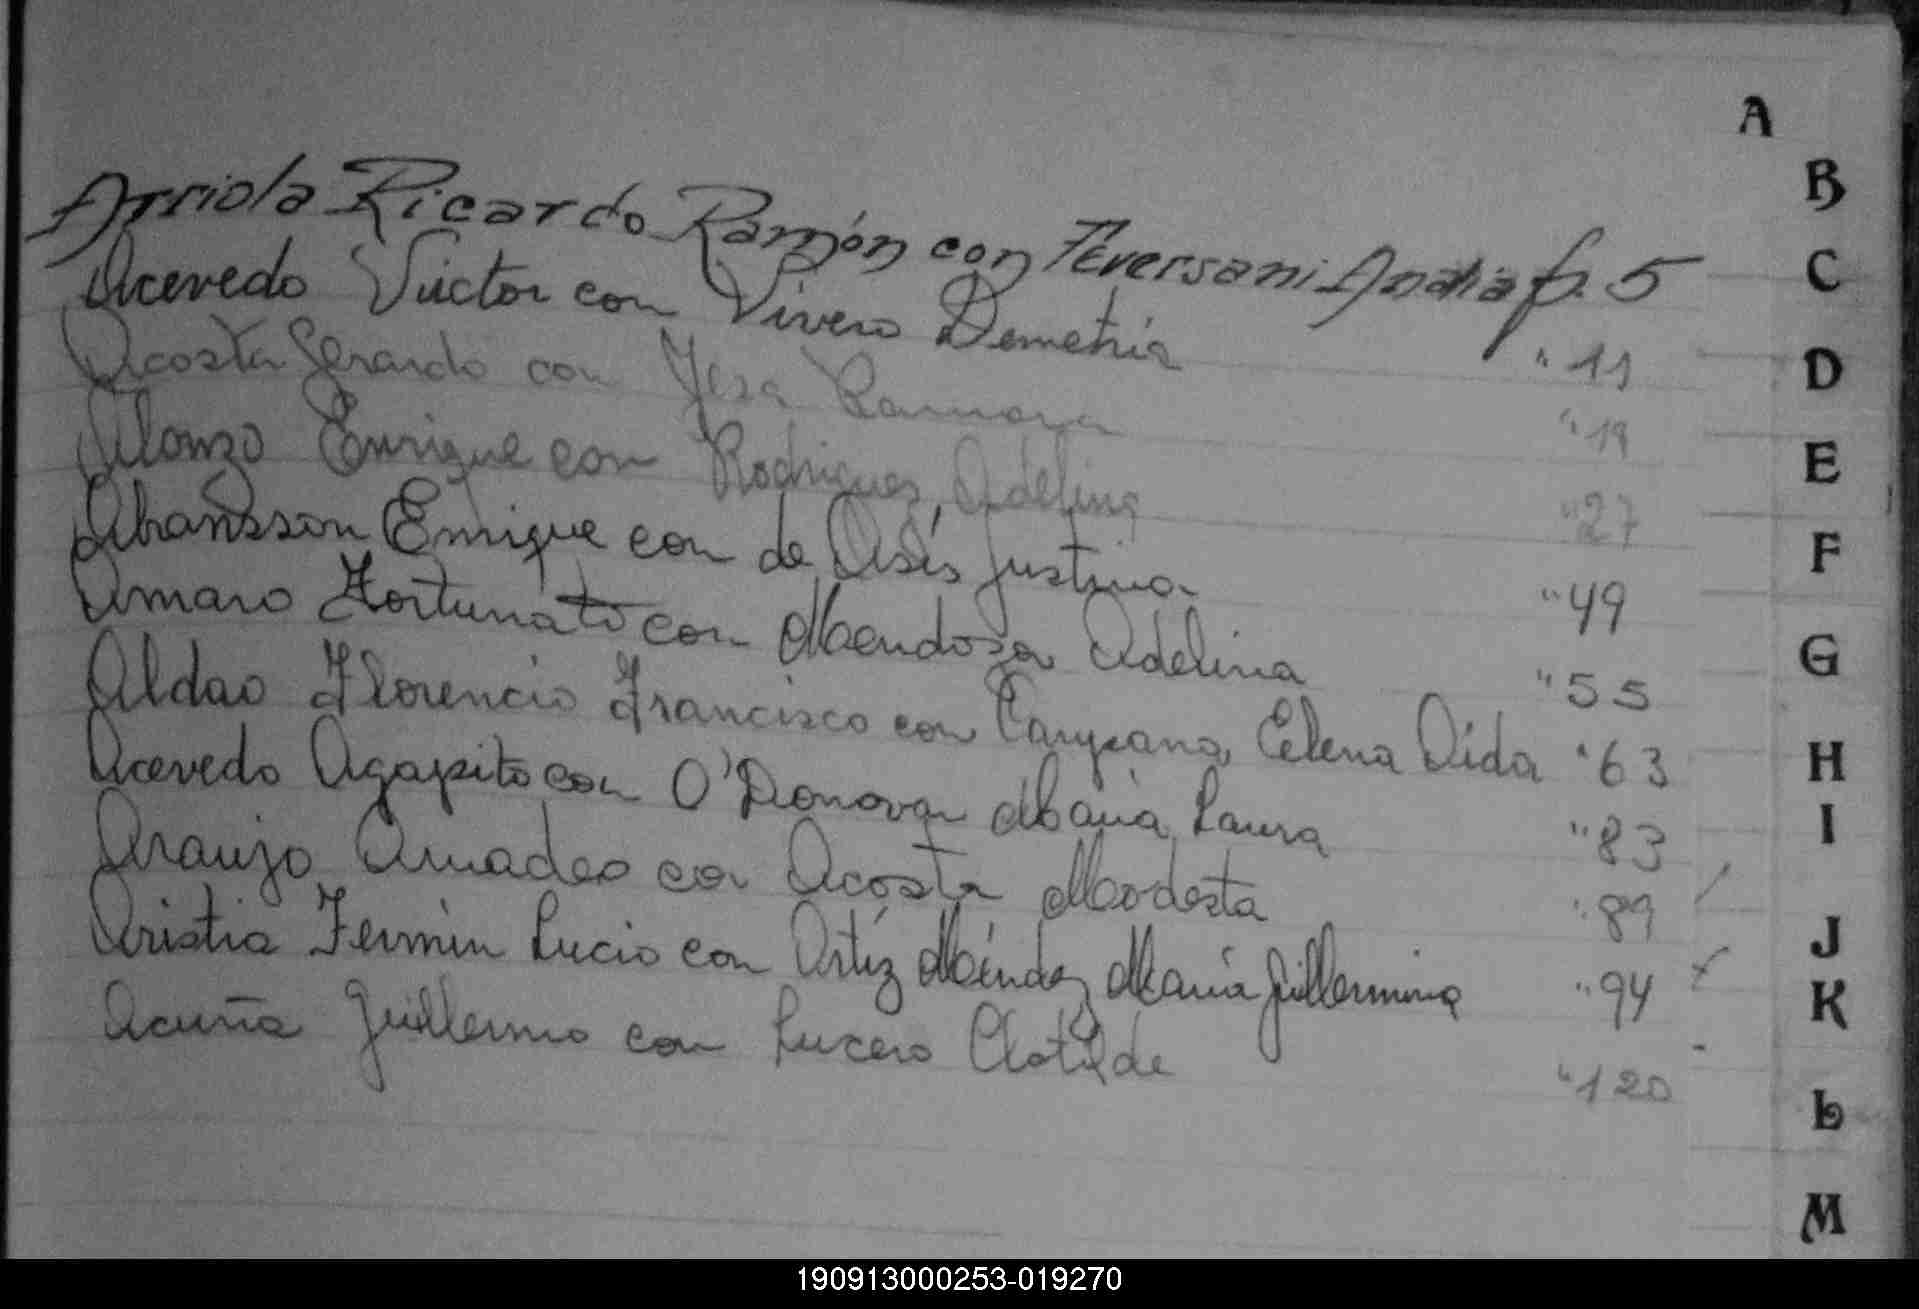 A
Arriola Ricardo Ramón con Teversani Andia f. 5
Acevedo Victor con Vivero Demetria " 11
Acosta Gerardo con Yesa Ramona " 19
Alonzo Enrique con Rodriguez Adelina " 27
Abransson Enrique con de Asís Justina " 49
Amaro Fortunato con Mendoza Adelina " 55
Aldao Florencio Francisco con Campana Elena Aida " 63
Acevedo Agapito con O'Donovan María Laura " 83
Araujo Amadeo con Acosta Modesta " 89
Aristia Fermín Lucio con Ortíz Méndez María Guillermina " 94
Acuña Guillermo con Lucero Clotilde " 120
B
C
D
E
F
G
H
I
J
K
L
M
190913000253-019270